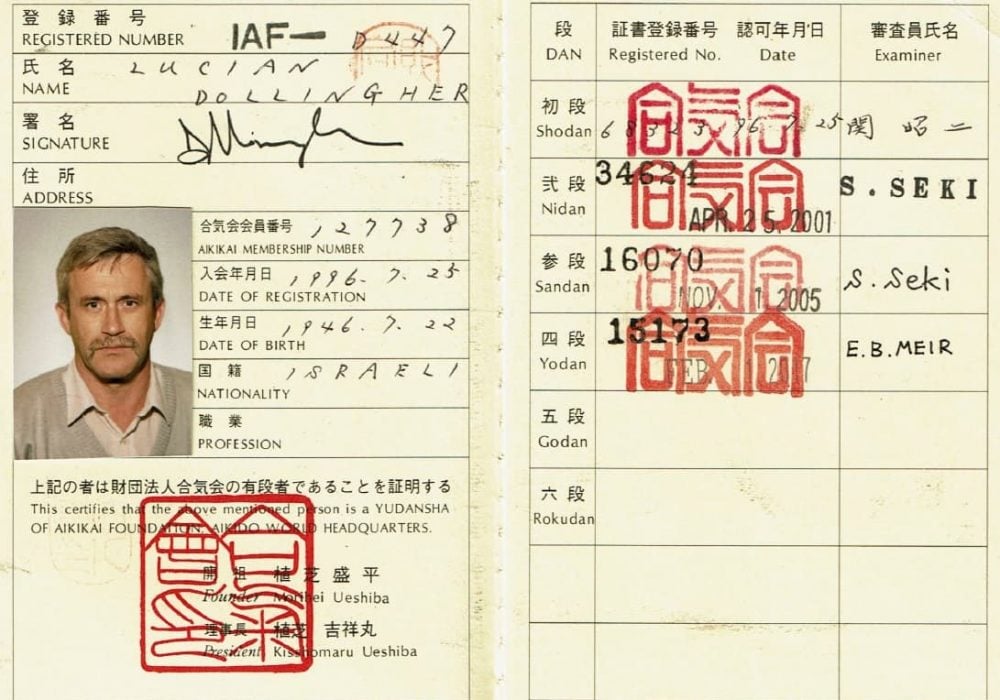 登 録 番 号
REGISTERED NUMBER IAF— D447
氏 名 LUCIAN
NAME DOLLINGHER
署 名
SIGNATURE
住 所
ADDRESS
合気会会員番号 127738
AIKIKAI MEMBERSHIP NUMBER
入会年月日 1996. 7. 25
DATE OF REGISTRATION
生年月日 1946. 7. 22
DATE OF BIRTH
国 籍 ISRAELI
NATIONALITY
職 業
PROFESSION
上記の者は財団法人合気会の有段者であることを証明する
This certifies that the above mentioned person is a YUDANSHA
OF AIKIKAI FOUNDATION, AIKIDO WORLD HEADQUARTERS.
開 祖 植 芝 盛 平
Founder Morihei Ueshiba
理事長 植芝 吉祥丸
President Kisshomaru Ueshiba
段 証書登録番号 認可年月日 審査員氏名
DAN Registered No. Date Examiner
初 段 合気会
Shodan 68323 96. 7. 25 関 昭二
弐 段 34624 合気会 S. SEKI
Nidan APR. 25. 2001
参 段 16070 合気会 S. Seki
Sandan NOV. 1 2005
四 段 15173 合気会 E.B. MEIR
Yodan FEB.
五 段
Godan
六 段
Rokudan